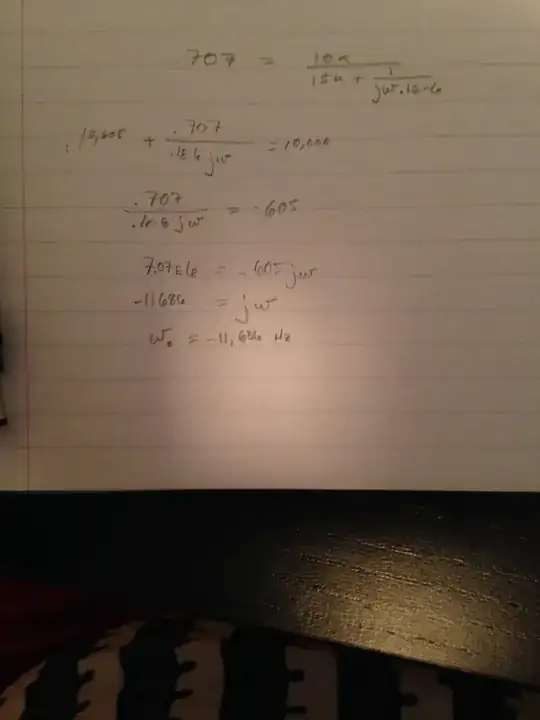 707 = 10k / (15k + 1 / (jw .1E-6))
10,605 + .707 / (.1E-6 jw) = 10,000
.707 / (.1E-6 jw) = -605
7.07E6 = -605 jw
-11686 = jw
w₀ = -11,686 Hz